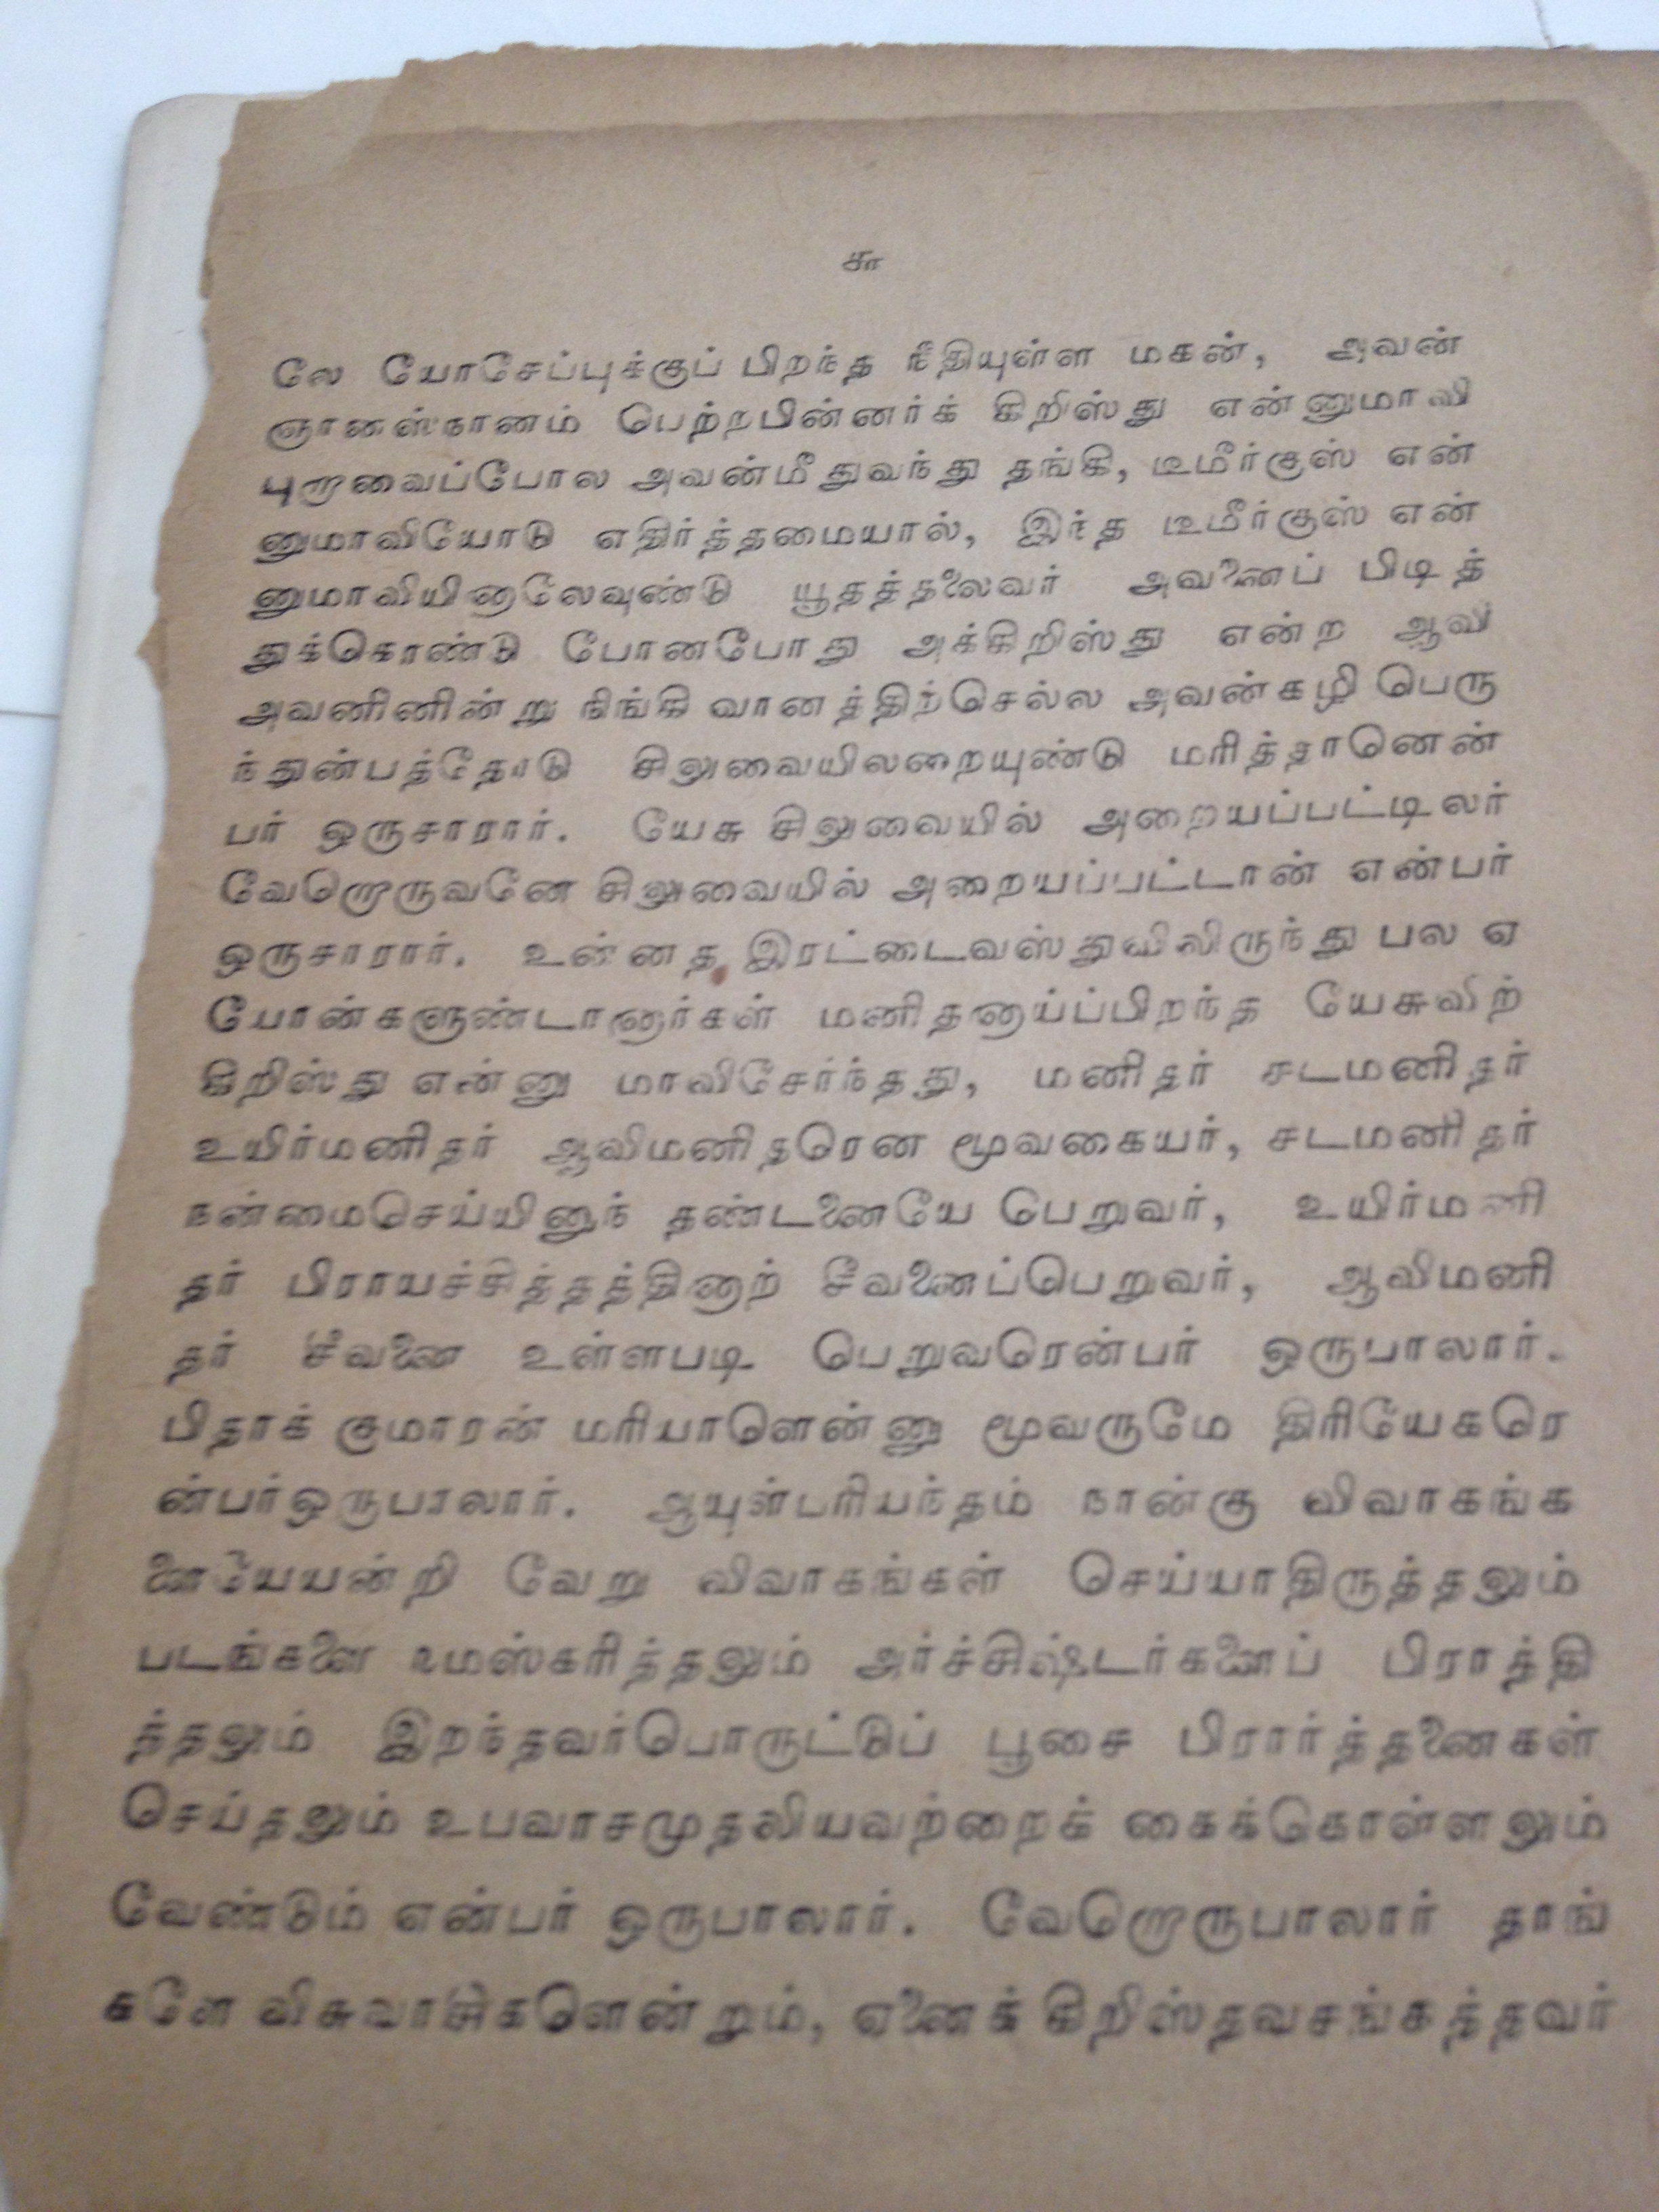 ௬
லே யோசேப்புக்குப் பிறந்த நீதியுள்ள மகன், அவன்
ஞானஸ்நானம் பெற்றபின்னர்க் கிறிஸ்து என்னுமாவி
புறாவைப்போல அவன்மீதுவந்து தங்கி, டீமீர்குஸ் என்
னுமாவியோடு எதிர்த்தமையால், இந்த டீமீர்குஸ் என்
னுமாவியினாலேவுண்டு யூதத்தலைவர் அவனைப் பிடித்
துக்கொண்டு போனபோது அக்கிறிஸ்து என்ற ஆவி
அவனினின்று நீங்கி வானத்திற்செல்ல அவன்கழி பெரு
ந்துன்பத்தோடு சிலுவையிலறையுண்டு மரித்தானென்
பர் ஒருசாரார். யேசு சிலுவையில் அறையப்பட்டிலர்
வேறொருவனே சிலுவையில் அறையப்பட்டான் என்பர்
ஒருசாரார். உன்னத இரட்டைவஸ்துயிலிருந்து பல ஏ
யோன்களுண்டானார்கள் மனிதனாய்ப்பிறந்த யேசுவிற்
கிறிஸ்து என்னு மாவிசேர்ந்தது, மனிதர் சடமனிதர்
உயிர்மனிதர் ஆவிமனிதரென மூவகையர், சடமனிதர்
நன்மைசெய்யினுந் தண்டனையே பெறுவர், உயிர்மனி
தர் பிராயச்சித்தத்தினாற் சீவனைப்பெறுவர், ஆவிமனி
தர் சீவனை உள்ளபடி பெறுவரென்பர் ஒருபாலார்.
பிதாக் குமாரன் மரியாளென்னு மூவருமே திரியேகரெ
ன்பர்ஒருபாலார். ஆயுள்பரியந்தம் நான்கு விவாகங்க
ளையேயன்றி வேறு விவாகங்கள் செய்யாதிருத்தலும்
படங்களை நமஸ்கரித்தலும் அர்ச்சிஷ்டர்களைப் பிராத்தி
த்தலும் இறந்தவர்பொருட்டுப் பூசை பிரார்த்தனைகள்
செய்தலும் உபவாசமுதலியவற்றைக் கைக்கொள்ளலும்
வேண்டும் என்பர் ஒருபாலார். வேறொருபாலார் தாங்
களே விசுவாசிகளென்றும், ஏனைக் கிறிஸ்தவசங்கத்தவர்